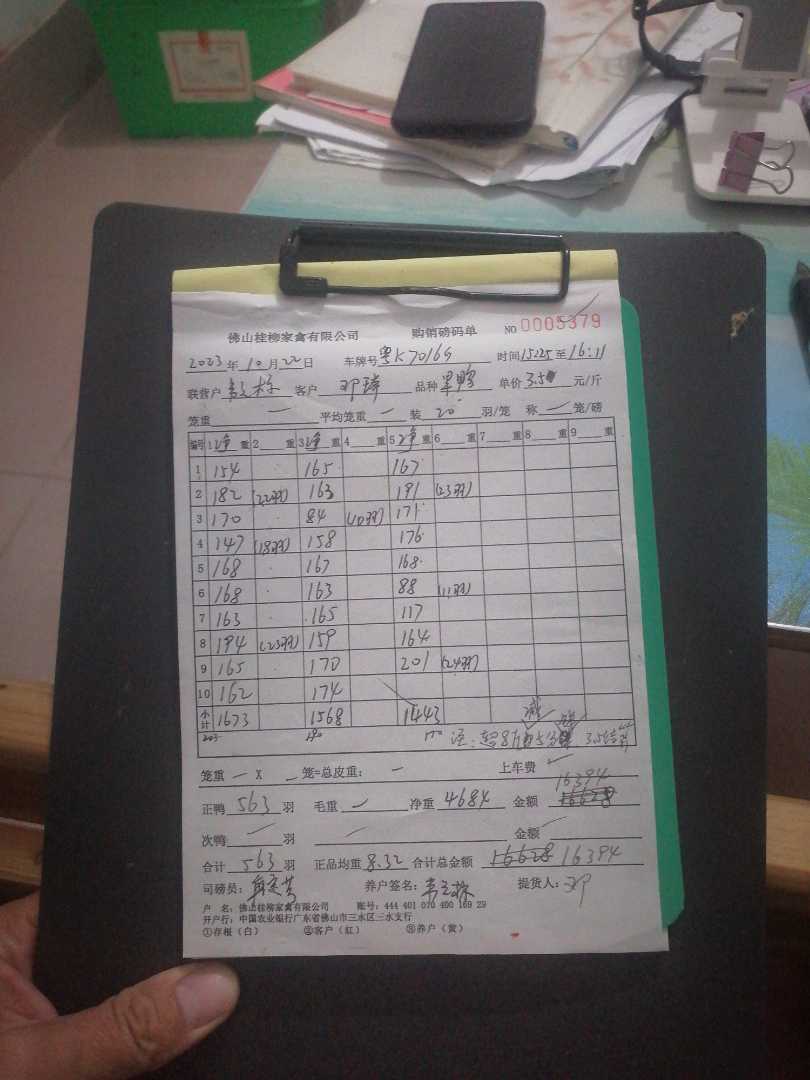 佛山桂柳家禽有限公司 购销磅码单 NO 0005379
2023年10月22日 车牌号粤K70169 时间15:25至16:11
联营户 客户 邓 品种 单价3.5元/斤
笼重 一 平均笼重 一 装 20 羽/笼 称 一 笼/磅
编号 1净重 2 重 3净重 4 重 5净重 6 重 7 重 8 重 9 重
1 154 165 167
2 182 (22羽) 163 191 (23羽)
3 170 84 (10羽) 171
4 147 (18羽) 158 176
5 168 167 168
6 168 163 88 (11羽)
7 163 165 117
8 194 (23羽) 159 164
9 165 170 201 (24羽)
10 162 174
小计 1673 1568 1443
203 190 170 注:超8斤 5分 3.5结
笼重 一 X 一 笼=总皮重: 一 上车费
16394
正鸭 563 羽 毛重 一 净重 4684 金额 16628
次鸭 羽 金额
合计 563 羽 正品均重 8.32 合计总金额 16628 16394
司磅员: 养户签名: 提货人:邓
户 名:佛山桂柳家禽有限公司 账号:444 401 010 400 169 29
开户行:中国农业银行广东省佛山市三水区三水支行
①存根(白) ②客户(红) ③养户(黄)